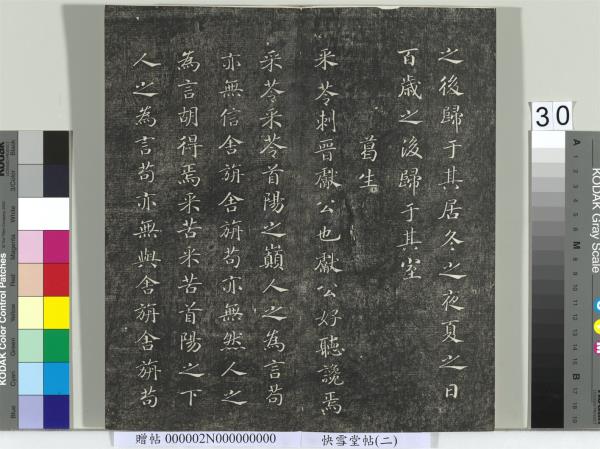 之後歸于其居冬之夜夏之日
百歲之後歸于其室
葛生
采苓刺晉獻公也獻公好聽讒焉
采苓采苓首陽之巔人之為言苟
亦無信舍旃舍旃苟亦無然人之
為言胡得焉采苦采苦首陽之下
人之為言苟亦無與舍旃舍旃苟
30
贈帖 000002N000000000
快雪堂帖(二)
KODAK Color Control Patches
Blue
Cyan
Green
Yellow
Red
Magenta
White
3/Color
Black
KODAK Gray Scale
A 1 2 3 4 5 6 M 8 9 10 11 12 13 14 15 B 17 18 19
C
Y
M